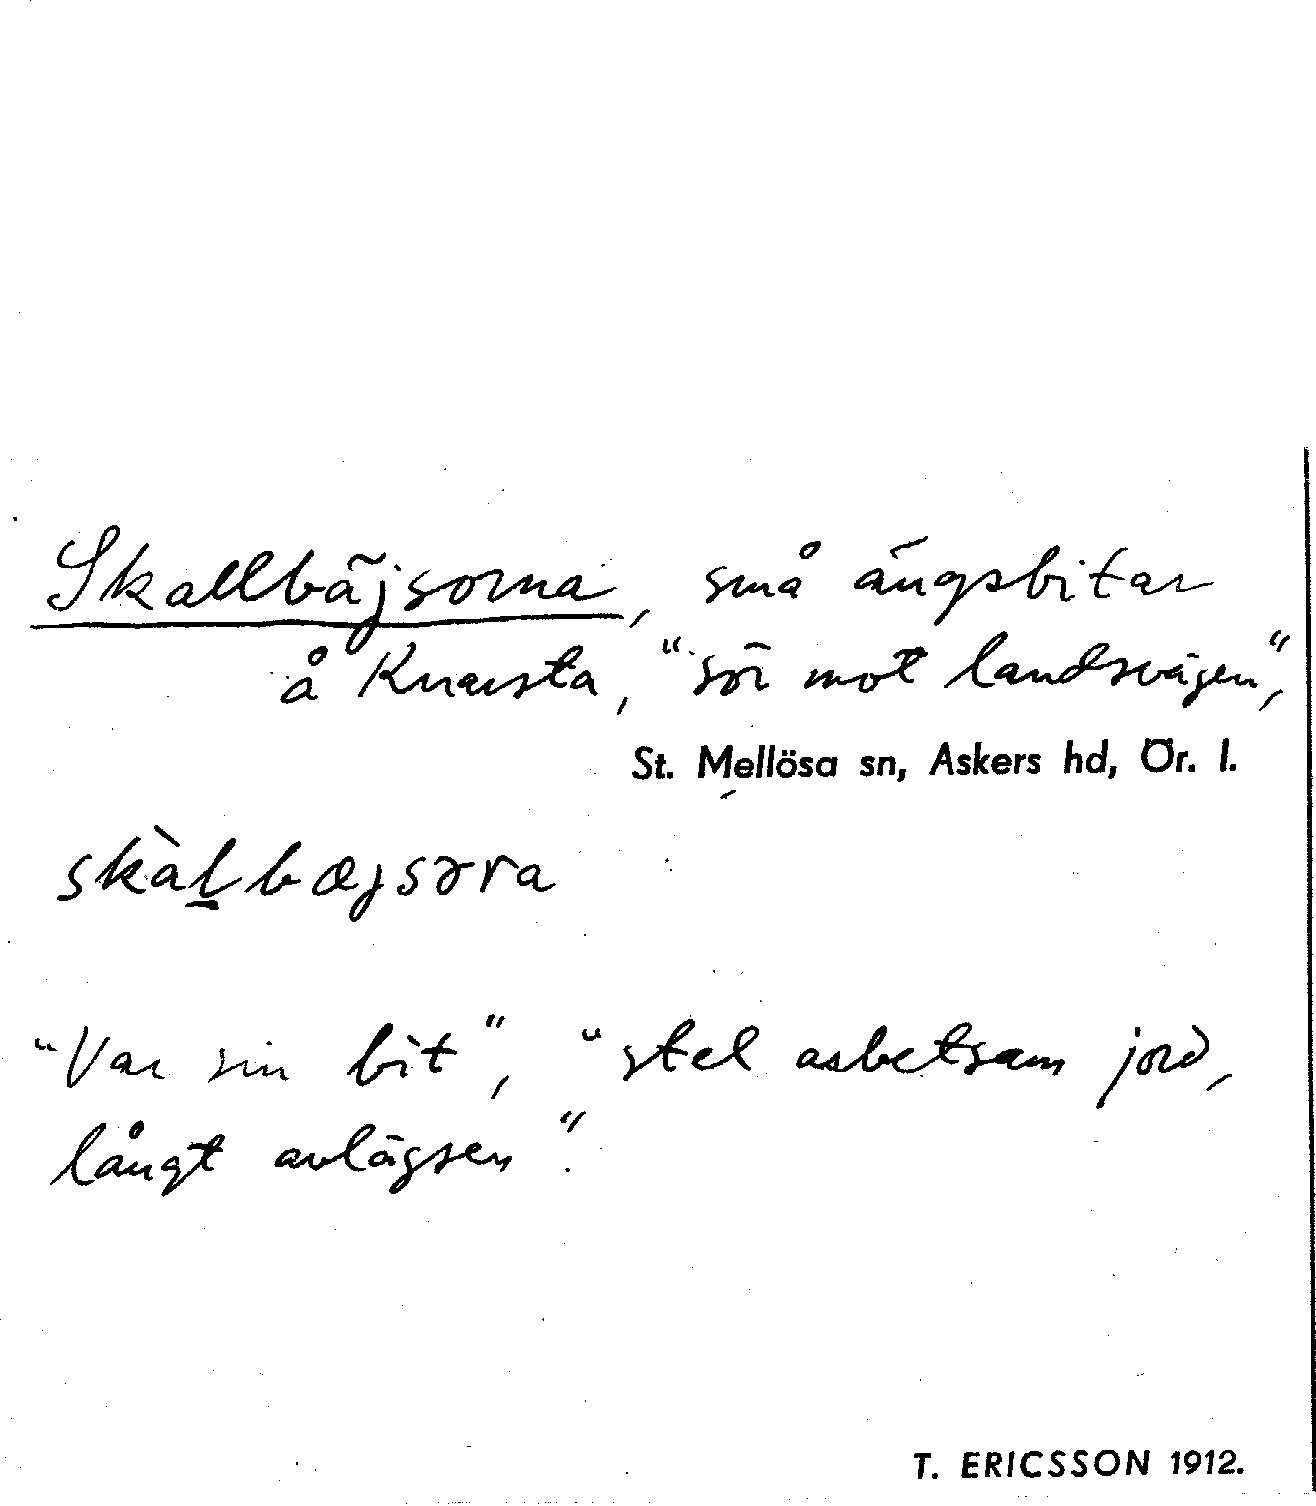 Skallbäjsorna, små ängsbitar
å Knavsta, "sör mot landsvägen",
St. Mellösa sn, Askers hd, Ör. l.
skàl̲bæjsəra
"Var sin bit", "stel arbetsam jord,
långt avlägsen".
T. ERICSSON 1912.